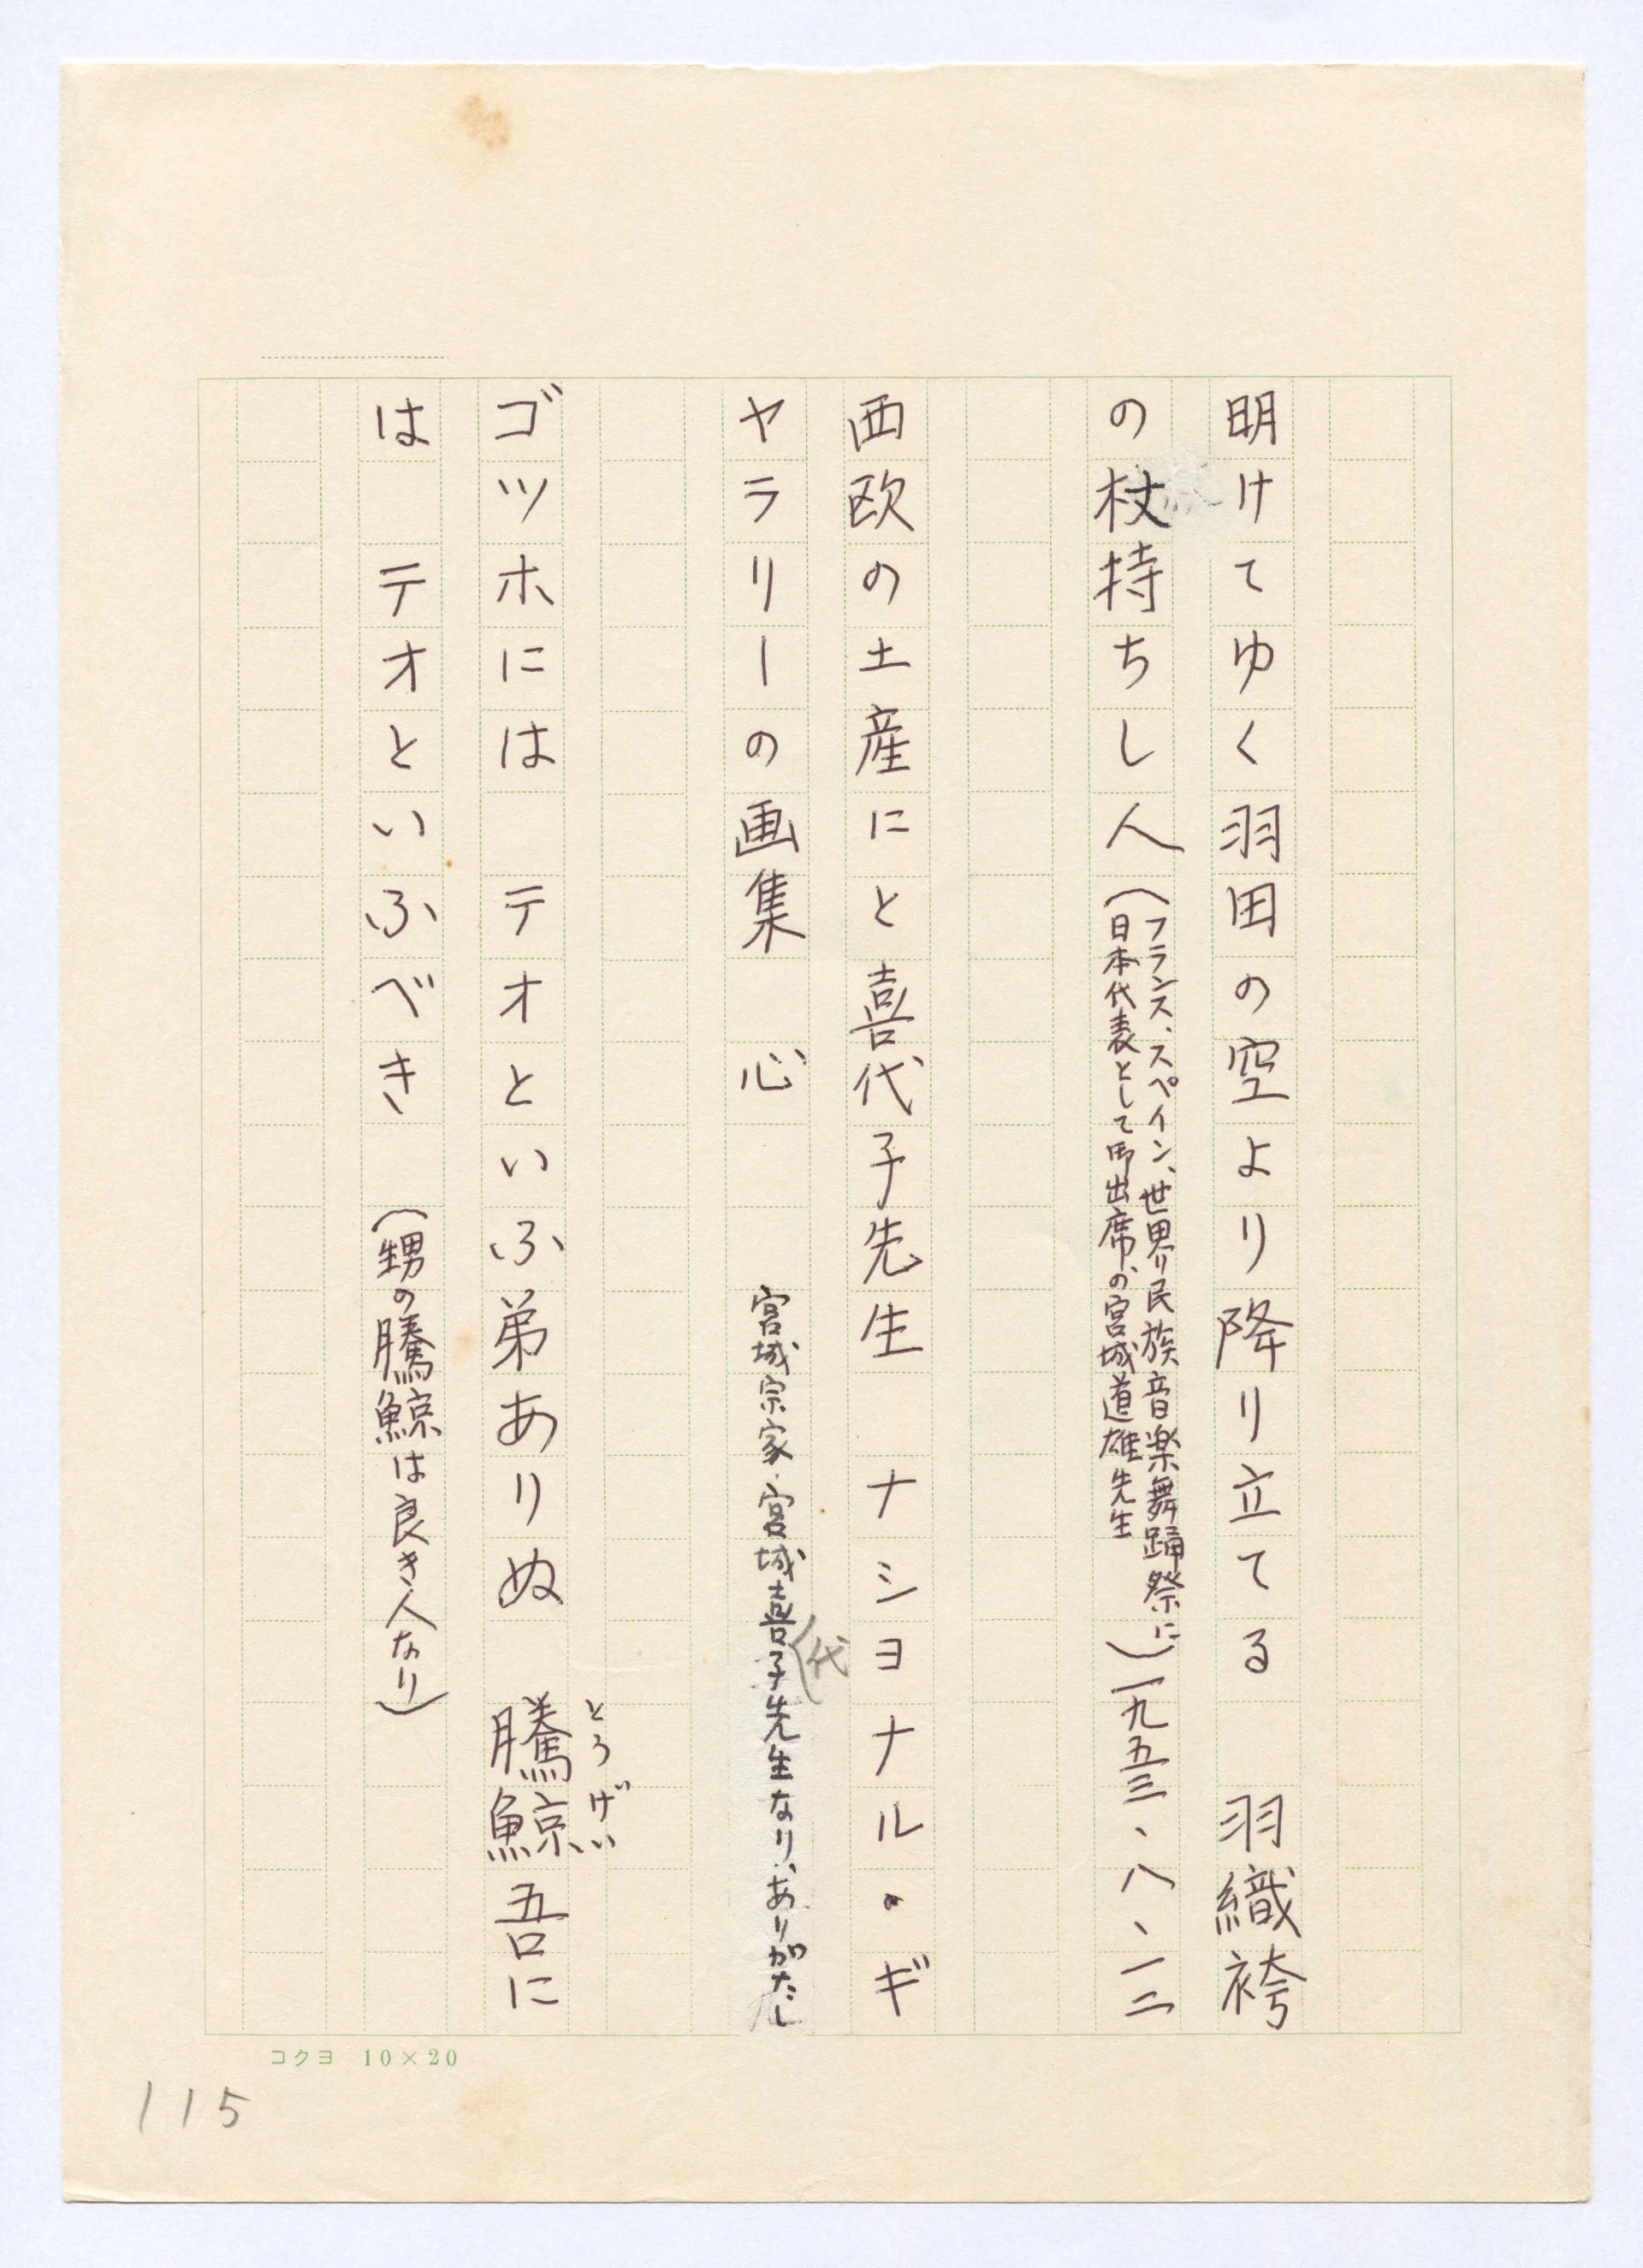 明けてゆく羽田の空より降り立てる　羽織袴
の杖持ちし人（フランス、スペイン、世界民族音楽舞踊祭に
日本代表として御出席の、宮城道雄先生）一九五三、八、一二
西欧の土産にと喜代子先生　ナシヨナル・ギ
ヤラリーの画集　心　宮城宗家・宮城喜代子先生なり、ありがたし
ゴツホには　テオといふ弟ありぬ　騰鯨吾に
とうげい
は　テオといふべき　（甥の騰鯨は良き人なり）
コクヨ 10×20
115